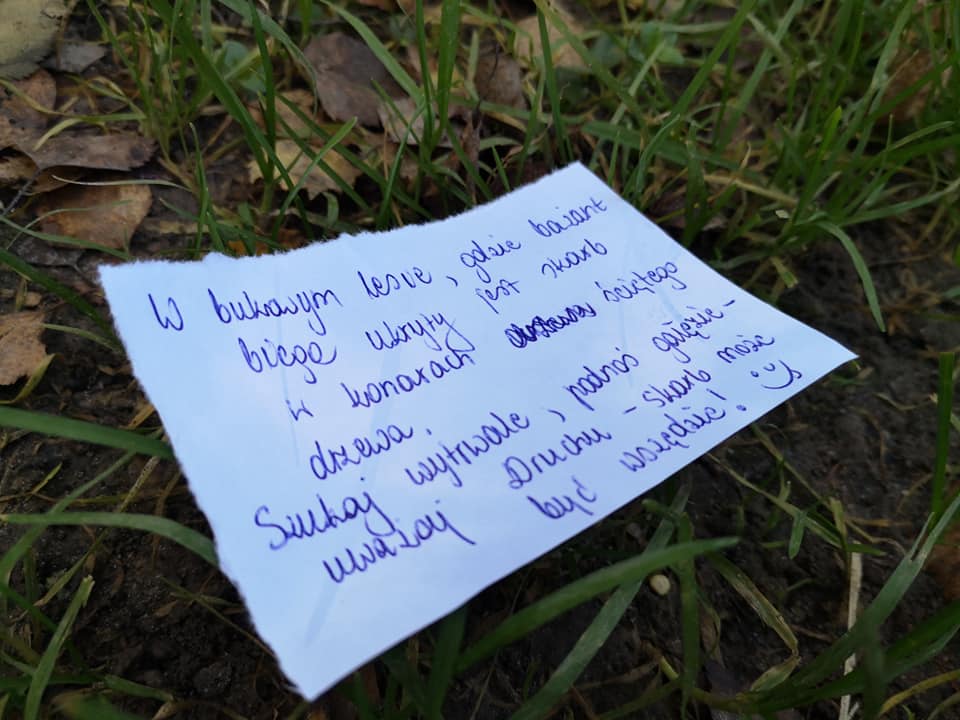 W bukowym lesie, gdzie bażant
biega ukryty jest skarb
w konarach ściętego
drzewa.
Szukaj wytrwale, podnoś gałęzie -
uważaj Druhu - skarb może
być wszędzie!